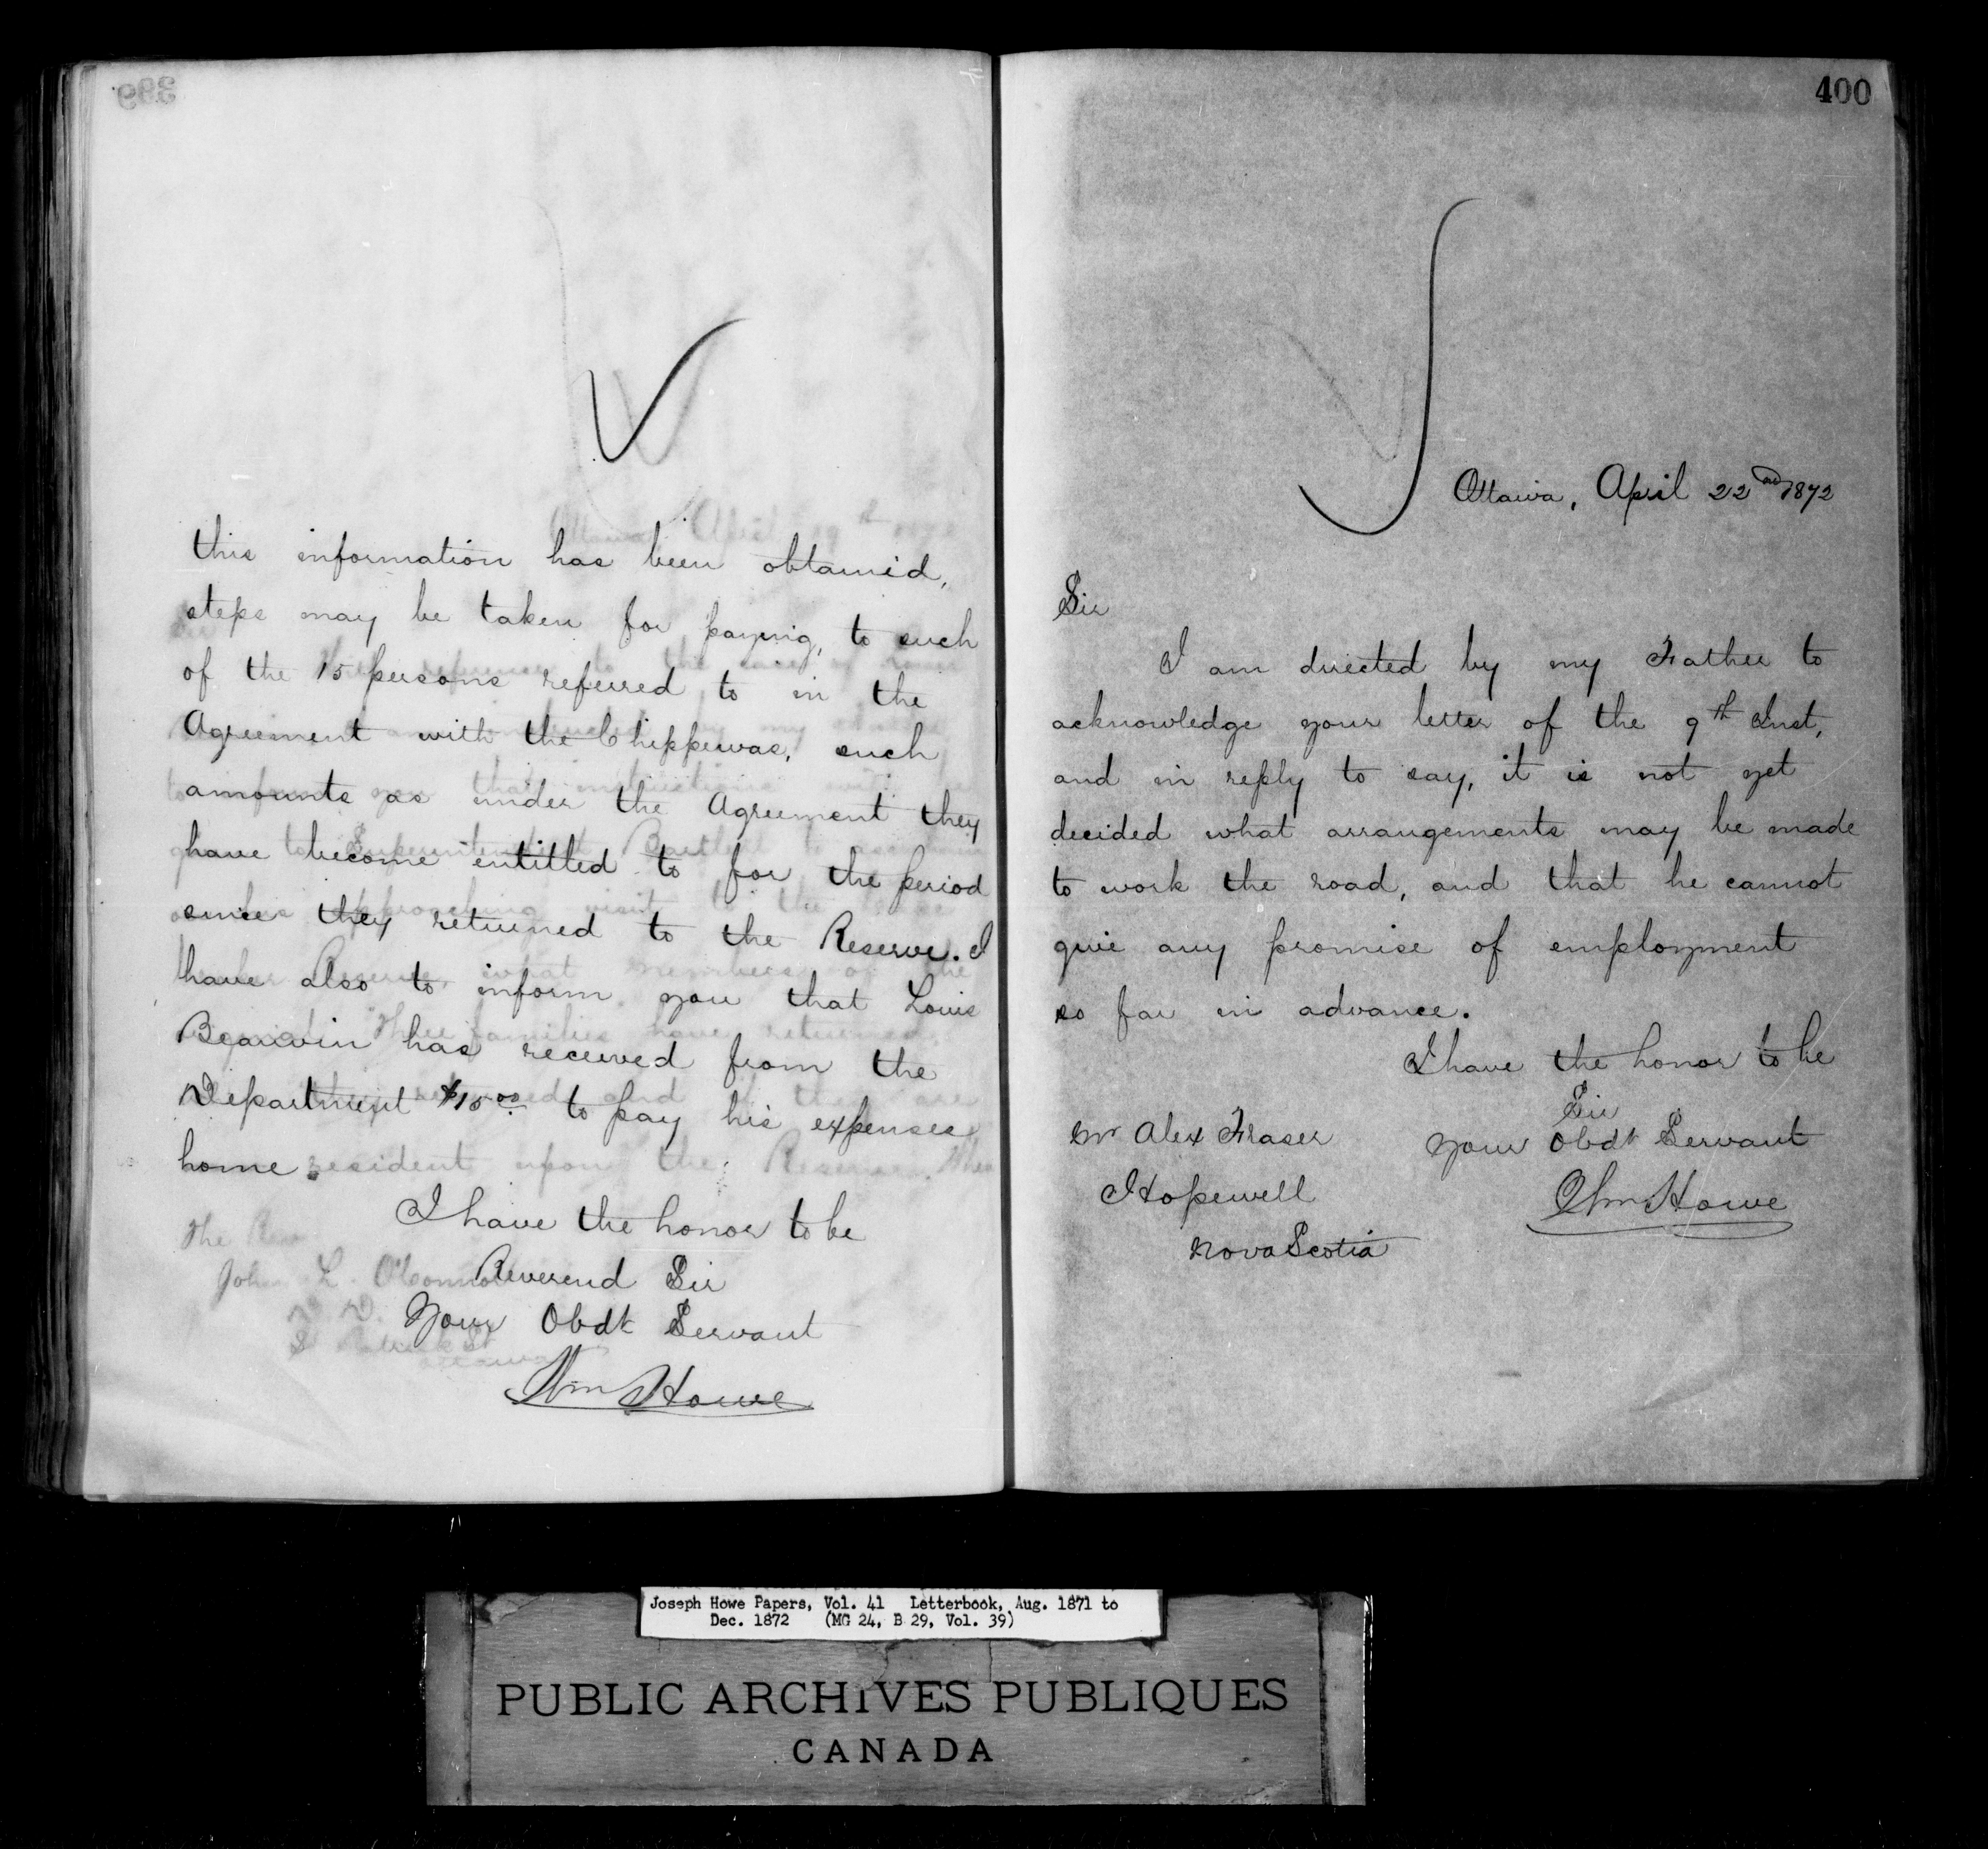 this information has been obtained,
steps may be taken for paying, to such
of the 15 persons referred to in the
Agreement with the Chippewas, such
amounts as under the Agreement they
have become entitled to for the period
since they returned to the Reserve. I
have also to inform you that Louis
Beauvin has received from the
Department $15 00 to pay his expenses
home.
I have the honor to be
Reverend Sir
Your Obdt Servant
Wm Howe
The Rev
John L. O'Connor
400
Ottawa, April 22nd 1872
Sir
I am directed by my Father to
acknowledge your letter of the 9th Inst,
and in reply to say, it is not yet
decided what arrangements may be made
to work the road, and that he cannot
give any promise of employment
so far in advance.
I have the honor to be
Sir
Your Obdt Servant
Wm Howe
Mr Alex Fraser
Hopewell
Nova Scotia
Joseph Howe Papers, Vol. 41 Letterbook, Aug. 1871 to
Dec. 1872 (MG 24, B 29, Vol. 39)
PUBLIC ARCHIVES PUBLIQUES
CANADA